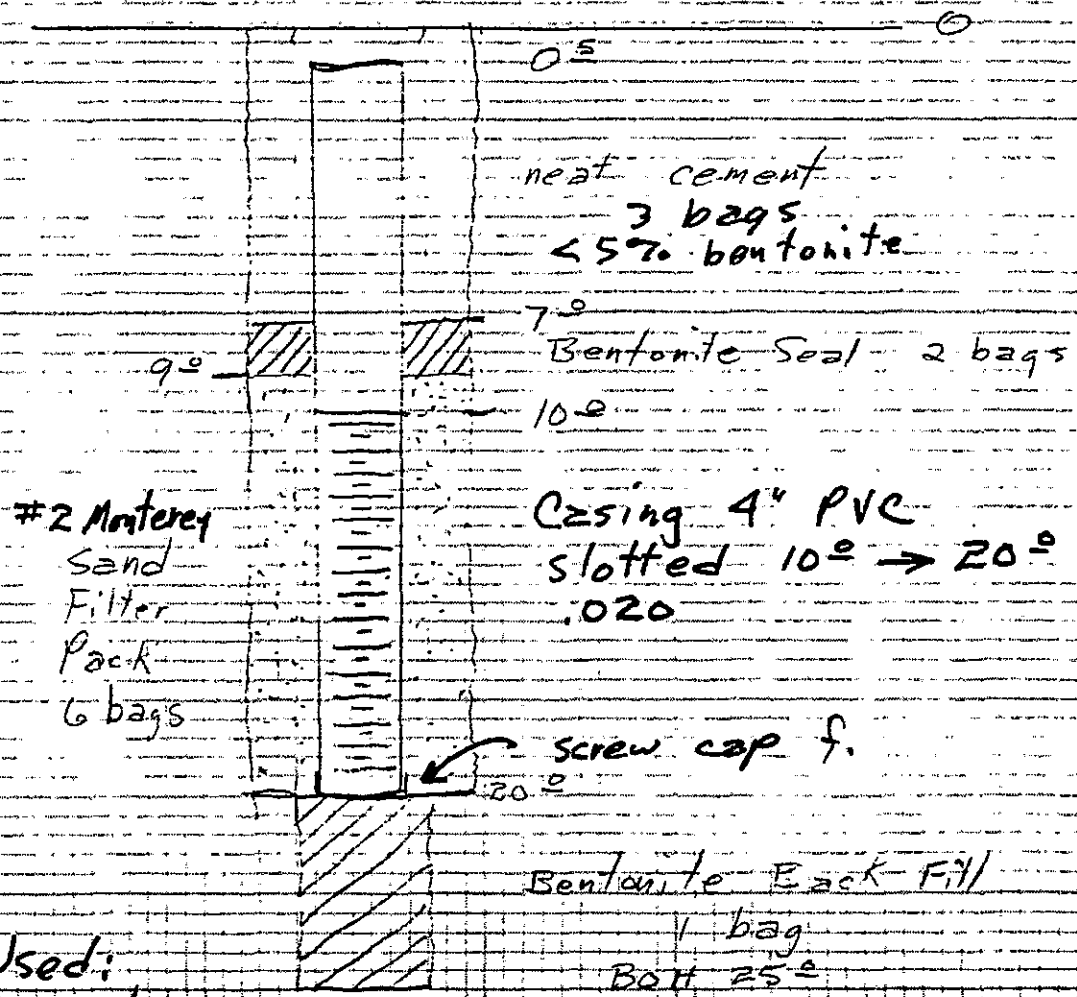 0
0 5
neat cement
3 bags
<5% bentonite
7 0
Bentonite Seal - 2 bags
9 0
10 0
#2 Monterey
Sand
Filter
Pack
6 bags
Casing 4" PVC
slotted 10 0 → 20 0
.020
screw cap f.
20 0
Bentonite Back Fill
1 bag
BOH 25 0
Used: